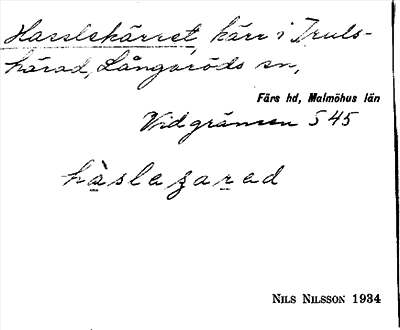 Hasslekärret, kärr i Truls-
härad, Långaröds sn,
Färs hd, Malmöhus län
Vid gränsen S 45
hàslazarad
NILS NILSSON 1934